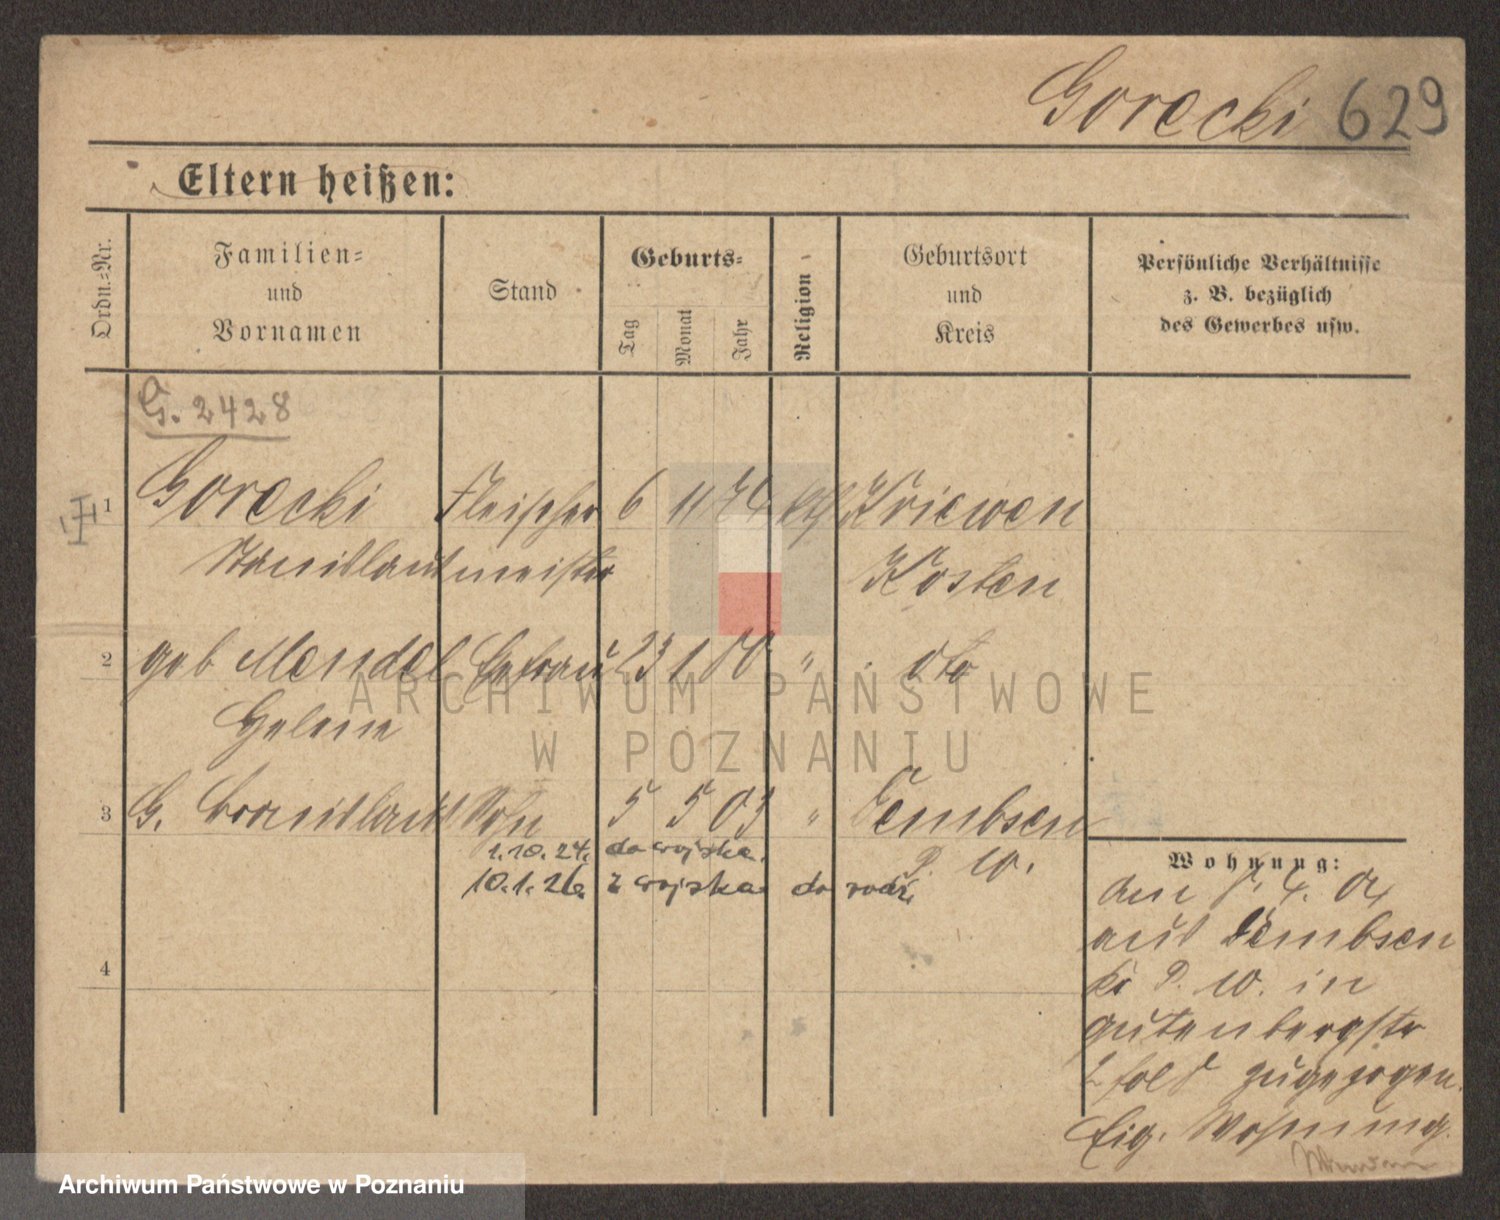 Gorecki 629
Eltern heißen:
Ordn.-Nr.
Familien-
und
Vornamen
Stand
Geburts-
Tag
Monat
Jahr
Religion
Geburtsort
und
Kreis
Persönliche Verhältnisse
z. B. bezüglich
des Gewerbes usw.
G. 2428
1 Gorecki Fleischer 6 11 74 kth Kriewen
Stanislaus meister Kosten
2 geb Mendel Ehefrau 23 1 80 " dto
Helene
3 G. Stanislaus Sohn 5 5 03 " Dembsen
P. W.
1.10.24. do wojska.
10.1.26. z wojska do rodz.
4
Wohnung:
am 4. 04
aus Dembsen
Kr P. W. in
Gutenbergstr
zugezogen.
Eig. Wohnung.
ARCHIWUM PAŃSTWOWE
W POZNANIU
Archiwum Państwowe w Poznaniu